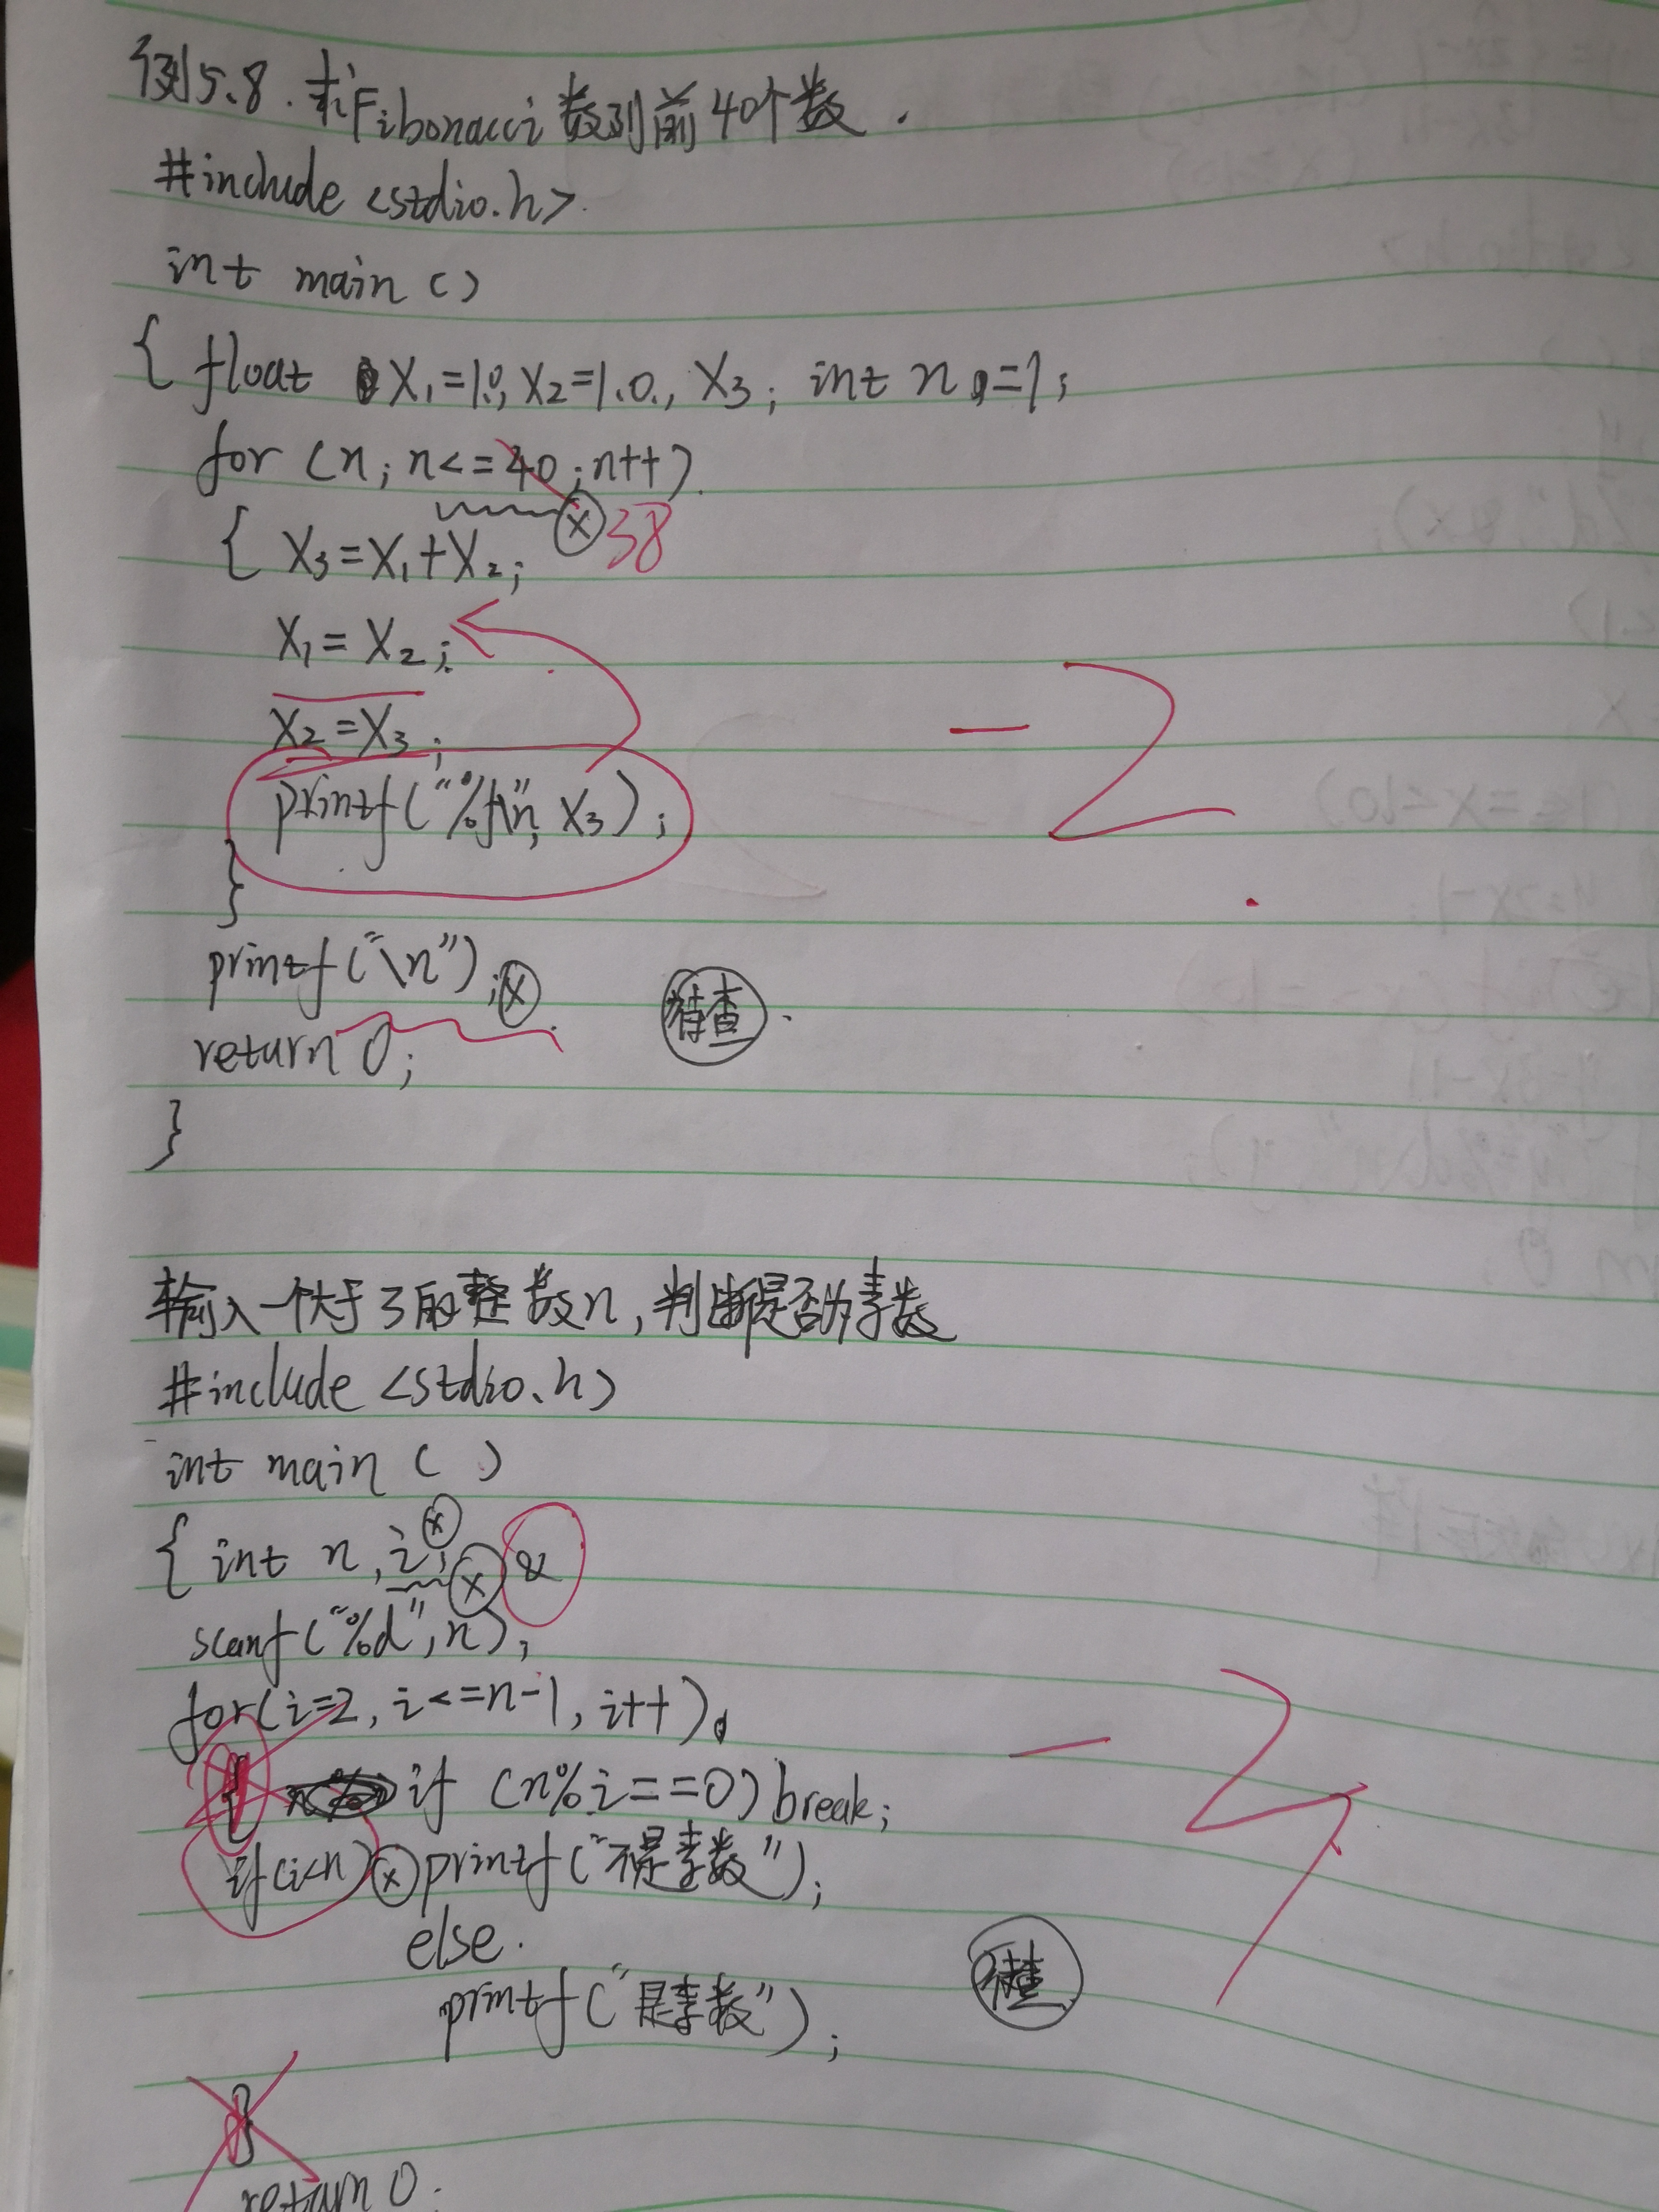 例5.8.求Fibonacci数列前40个数.
#include <stdio.h>
int main ()
{ float X₁=1.0, X₂=1.0, X₃; int n=1;
for (n; n<=40; n++)
ⓧ 38
{ X₃=X₁+X₂;
X₁=X₂;
X₂=X₃;
printf("%f\n", X₃);
-2
}
printf("\n"); ⓧ 待查.
return 0;
}
输入一个大于3的整数n,判断是否为素数
#include <stdio.h>
int main ( )
{ int n, i; ⓧ
ⓧ &
scanf("%d", n);
for(i=2, i<=n-1, i++)
{ if (n%i==0) break;
if(i<n) ⓧ printf("不是素数");
else.
待查
printf("是素数");
}
return 0;